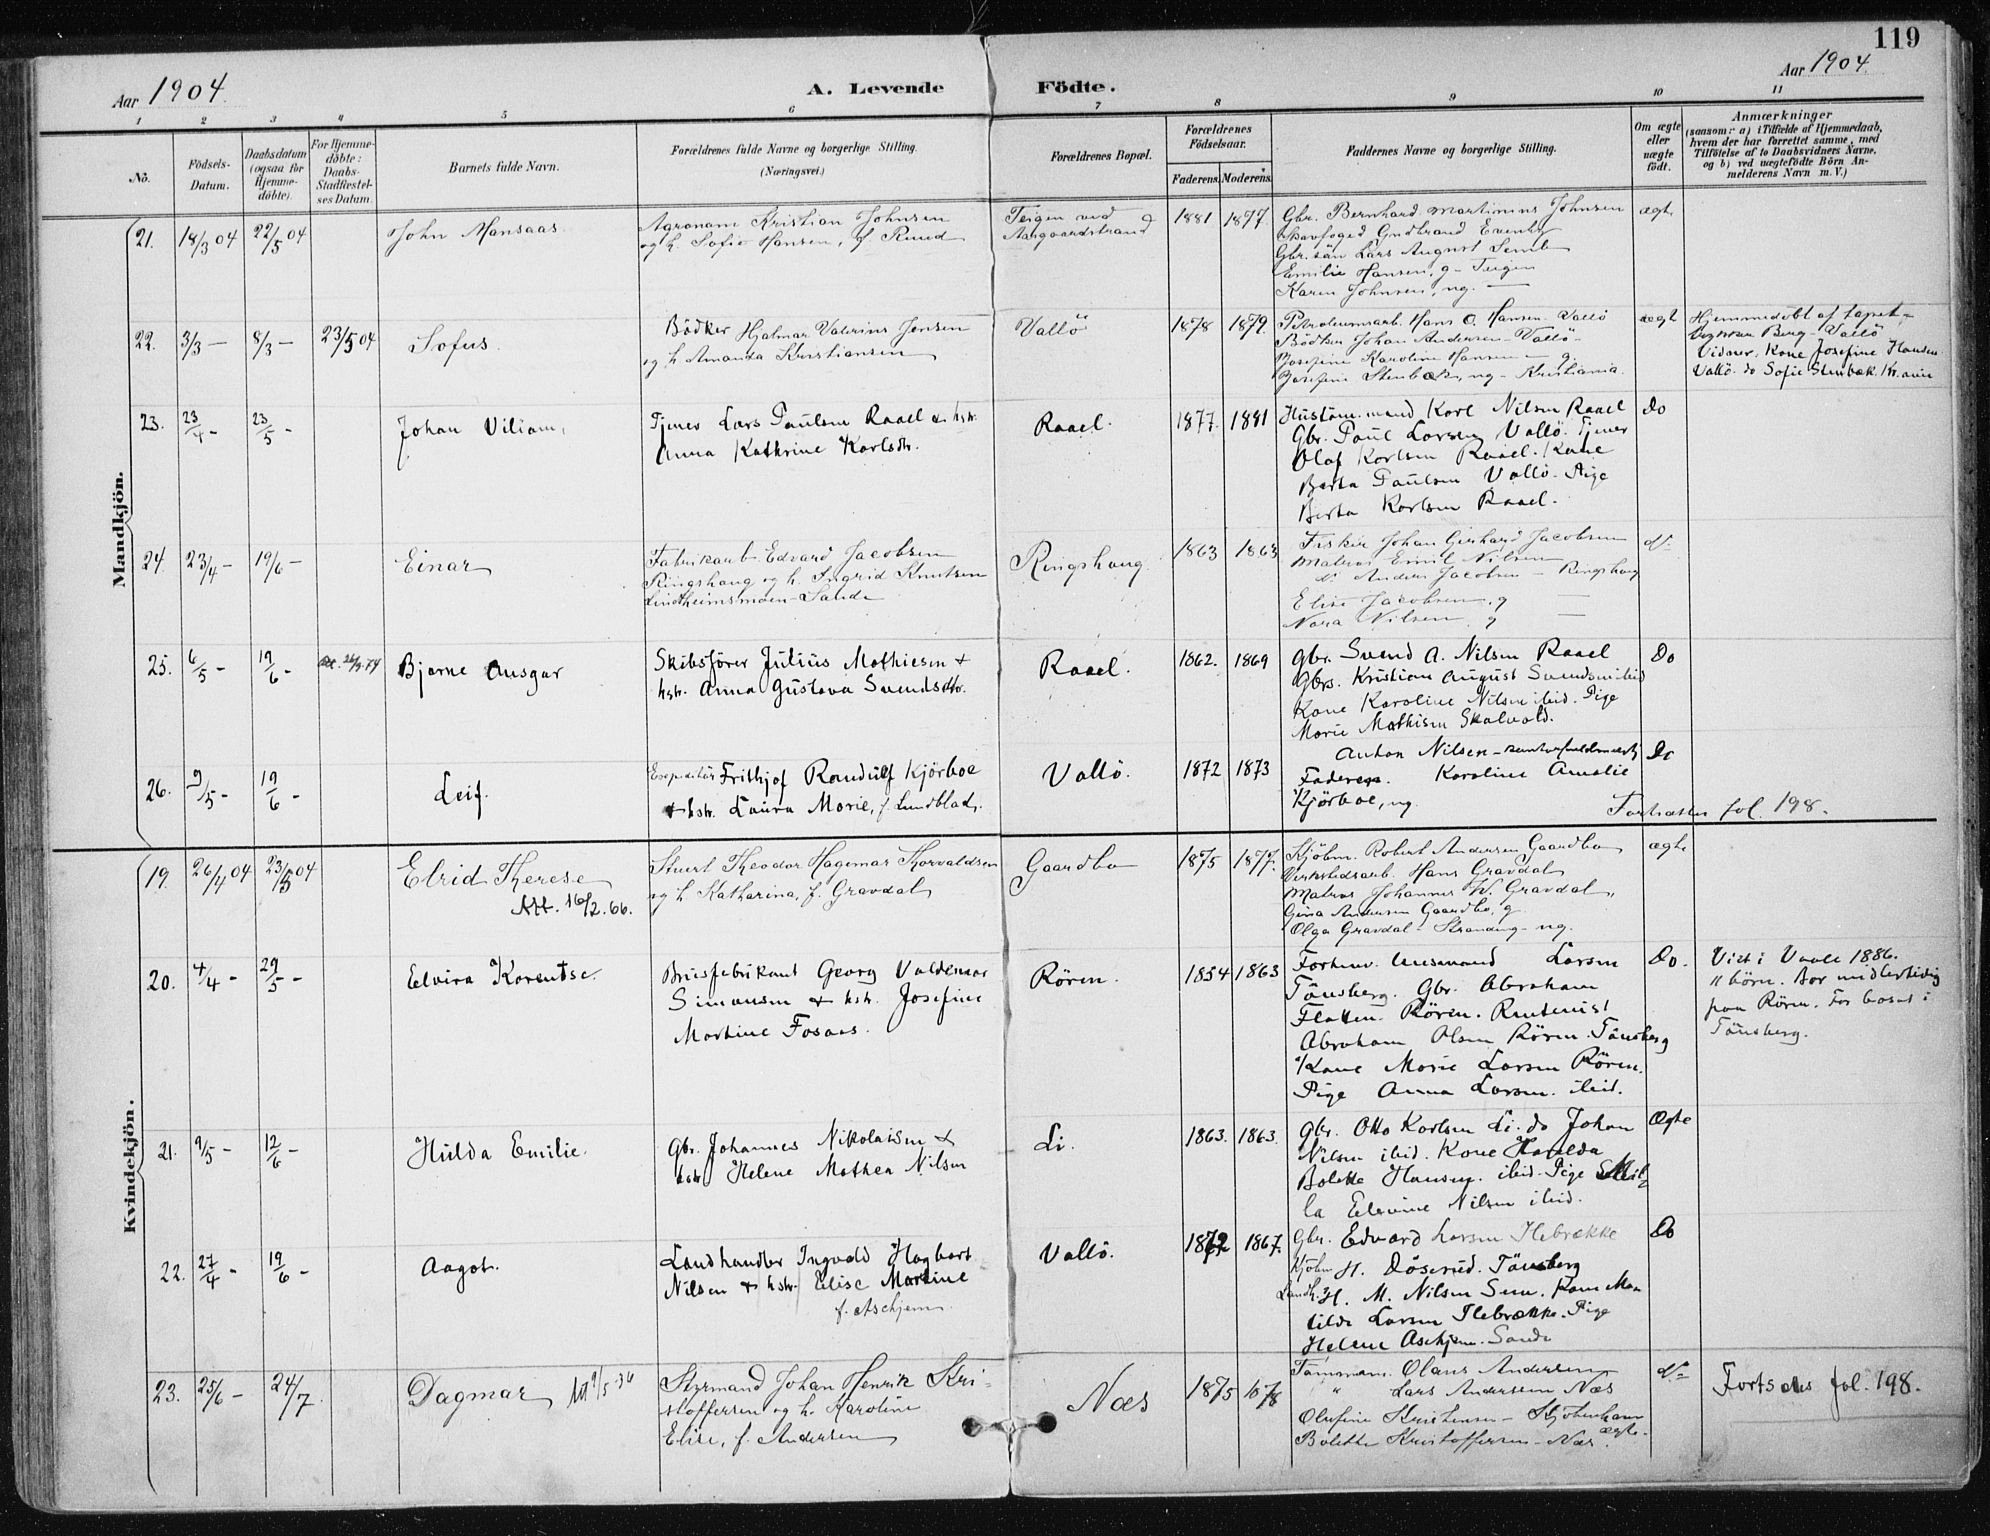 119
Aar 1904.
A. Levende Födte.
Aar 1904.
1 2 3 4 5 6 7 8 9 10 11
No.
Födsels-Datum.
Daabsdatum (ogsaa for Hjemme-döbte).
For Hjemme-döbte: Daabs-Stadfæstel-ses Datum.
Barnets fulde Navn.
Forældrenes fulde Navne og borgerlige Stilling.
(Næringsvei.)
Forældrenes Bopæl.
Forældrenes Födselsaar.
Faderens. Moderens.
Faddernes Navne og borgerlige Stilling.
Om ægte eller uægte födt.
Anmærkninger
(saasom: a) i Tilfælde af Hjemmedaab,
hvem der har forrettet samme, med
Tilföielse af to Daabsvidners Navne,
og b) ved uægtefödte Börn An-
melderens Navn m. V.)
Mandkjön.
21. 18/3 04 22/5 04 John Mansaas
Agronom Kristian Johnsen
og h. Sofie Hansen, f. Ruud
Teigen ved
Aasgaardstrand
1881 1877
Gbr. Bernhard Martinius Johnsen
Skovfoged Gudbrand Evenby
Gbr. sön Lars August Semb
Emilie Hansen, g - Teigen
Karen Johnsen, ng. —
ægte
22. 3/3 — 8/3 — 23/5 04 Sofus.
Bödker Hjalmar Valerius Jensen
og h. Amanda Kristiansen
Vallö
1878 1879
Petroleumsarb. Hans O. Hansen - Vallö
Bödker Johan Andersen - Vallö -
Josefine Karoline Hansen — g.
Josefine Stenbæk, ng - Kristiania.
ægte
Hjemmedöbt af
Berg - Vallö
Vidner. Kone Josefine Hansen
Vallö. do Sofie Stenbæk.
23. 23/4 - 23/5 - Johan Viliam,
Tjener Lars Paulsen Raael & hstr.
Anna Kathrine Karlsdtr.
Raael.
1877. 1881
Husmand Karl Nilsen Raael
Gbr. Paul Larsen Vallö. Tjener
Olaf Karlsen Raael. Kone
Berta Paulsen Vallö. Pige
Berta Karlsen Raael.
Do
24. 23/4 — 19/6 — Einar
Fabrikarb. Edvard Jacobsen
Ringshaug og h. Ingrid Knutsen
Lindheimsmoen - Sande
Ringshaug
1863 1863
Fisker Johan Gerhard Jacobsen
Matros Emil Nilsen
do Anders Jacobsen - Ringshaug
Elise Jacobsen, g —
Nora Nilsen g —
25. 6/5 - 19/6 - Bjarne Ansgar
Skibsförer Julius Mathiesen &
hstr. Anna Gustava Svendsdtr.
Raael.
1862. 1869
Gbr. Svend A. Nilsen Raael
Gbrs. Kristian August Svendsen ibid
Kone Karoline Nilsen ibid. Pige
Marie Mathisen Skalvold.
Do
26. 9/5 - 19/6 - Leif.
Expeditör Frithjof Randulf Kjörboe
& hstr. Laura Marie, f. Lundblad.
Vallö.
1872 1873
Anton Nilsen -
Faderen. Karoline Amalie
Kjörboe, ng.
Do
Fortsættes fol. 198.
Kvindekjön.
19. 26/4 04 23/5 04 Elrid Therese
Att. 16/2. 66.
Stuert Theodor Hagemar Thorvaldsen
og h. Katharina, f. Gravdal
Gaardbo
1875 1877.
Kjöbm. Robert Andersen Gaardbo
Verkstedsarb. Hans Gravdal
Matros Johannes W. Gravdal,
Gina Andersen Gaardbo, g.
Olga Gravdal - - ng.
ægte
20. 4/4 - 29/5 - Elvira Korentse.
Brusfabrikant Georg Valdemar
Simonsen & hstr. Josefine
Martine Fosaas.
Rören.
1854 1863
Larsen
Tönsberg. Gbr. Abraham
Flatten. Rören. Rentenist
Abraham Olsen Rören. Tönsberg
Kone Marie Larsen Rören.
Pige Anna Larsen. ibid.
Do.
Viet i Vaale 1886.
11 börn. Bor midlertidig
paa Rören. Før bosat i
Tönsberg.
21. 9/5 - 12/6 - Hulda Emilie.
Gbr. Johannes Nikolaisen &
hstr. Helene Mathea Nilsen
Li.
1863. 1863.
Gbr. Otto Karlsen Li. do Johan
Nilsen ibid. Kone
Bolette Hansen. ibid. Pige
la Nilsen ibid.
Ægte
22. 27/4 - 19/6 - Aagot.
Landhandler Ingvald Hagbart
Nilsen & hstr. Elise Martine
f. Aschjem.
Vallö.
1867.
Gbr. Edvard Larsen Ilebrække
Kjöbm H. Döserud. Tönsberg
Landh. H. M. Nilsen Sem. Kone Ma-
tilde Larsen Ilebrække. Pige
Helene Aschjem. Sande
Do
23. 25/6 - 24/7 Dagmar
Styrmand Johan Henrik Kri-
stoffersen og h. Karoline
Elise, f. Andersen
Næs
1875 1878
Tömmerm. Olaus Andersen
" Lars Andersen Næs
Olufine Kristensen - Kjöbenhavn
Bolette Kristoffersen - Næs.
ægte.
Fortsættes fol. 198.